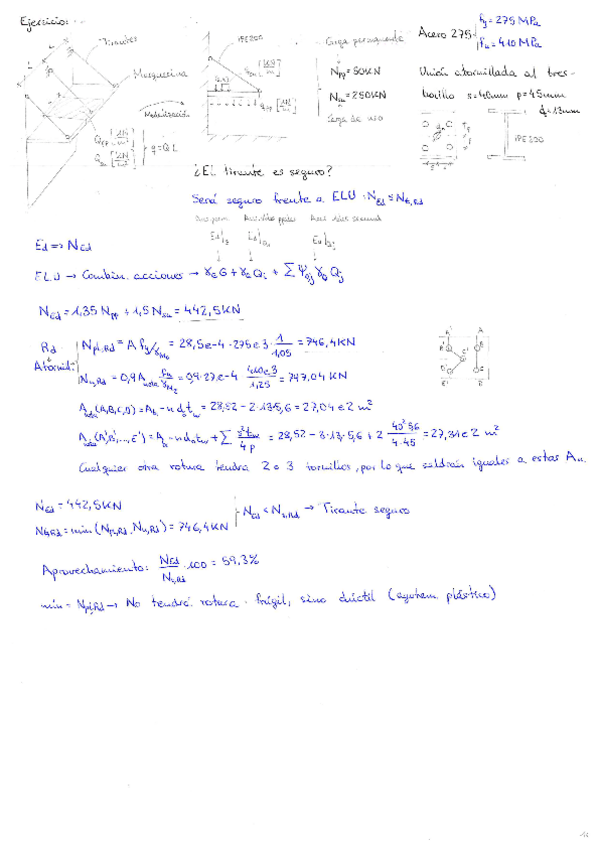 Ejercicio:
Tirantes
Marquesina
Modelización
q = Q L
IPE200
Carga permanente
N_pp = 50KN
N_su = 250KN
Carga de uso
Acero 275
f_y = 275 MPa
f_u = 410 MPa
Unión atornillada al tres-
bolillo s=40mm p=45mm
d=13mm
IPE200
¿EL tirante es seguro?
Será seguro frente a ELU: N_Ed ≤ N_t,Rd
Ed => N_Ed
ELU → Combin. acciones → γ_G G + γ_Q Q_i + Σ Ψ_0j γ_Q Q_j
N_Ed = 1,35 N_pp + 1,5 N_su = 442,5KN
Rd
Atornill.
N_pl,Rd = A f_y/γ_M0 = 28,5e-4 · 275e3 · 1/1,05 = 746,4KN
N_u,Rd = 0,9 A_neta f_u/γ_M2 = 0,9·27e-4 410e3/1,25 = 747,04 KN
A_neta (A,B,C,D) = A_b - n d_0 t_w = 28,52 - 2·13·5,6 = 27,04 e2 m²
A_neta (A',B',...,E') = A_b - n d_0 t_w + Σ s² t_w/4p = 28,52 - 3·13·5,6 + 2 40² 5,6/4·45 = 27,31 e2 m²
Cualquier otra rotura tendrá 2 o 3 tornillos, por lo que saldrán iguales a estas A_u.
N_Ed = 442,5KN
N_t,Rd = min (N_pl,Rd, N_u,Rd) = 746,4KN
N_Ed < N_t,Rd → Tirante seguro
Aprovechamiento: N_Ed/N_t,Rd · 100 = 59,3%
min = N_pl,Rd → No tendrá rotura frágil, sino dúctil (agotam. plástico)